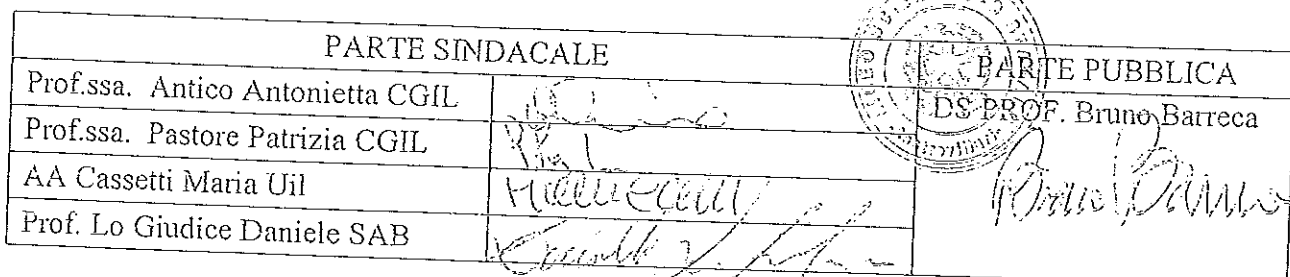 PARTE SINDACALE PARTE PUBBLICA
Prof.ssa. Antico Antonietta CGIL DS PROF. Bruno Barreca
Prof.ssa. Pastore Patrizia CGIL
AA Cassetti Maria Uil
Prof. Lo Giudice Daniele SAB